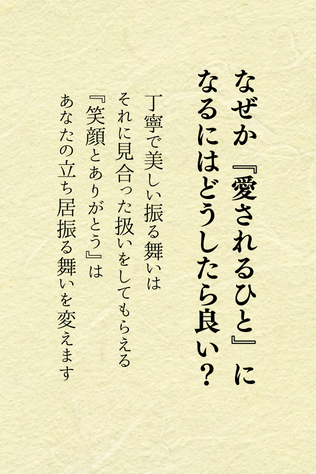 なぜか『愛されるひと』に
なるにはどうしたら良い？
丁寧で美しい振る舞いは
それに見合った扱いをしてもらえる
『笑顔とありがとう』は
あなたの立ち居振る舞いを変えます